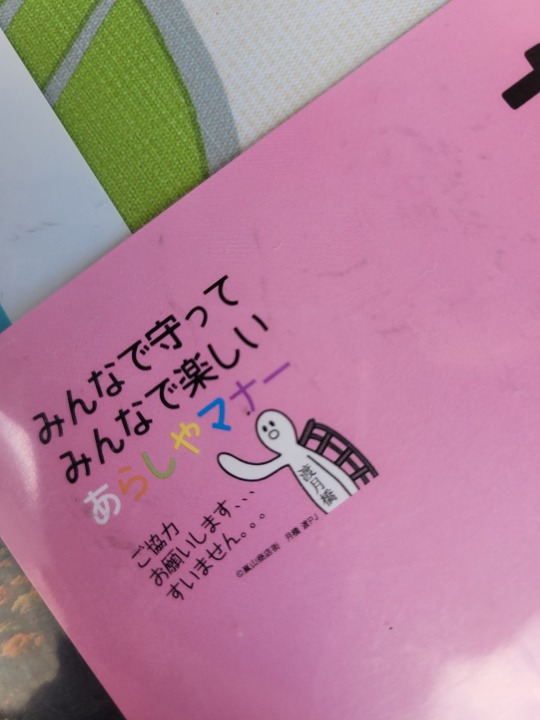 みんなで守って
みんなで楽しい
あらしやマナー
渡月橋
ご協力
お願いします、、、
すいません。。。
©嵐山商店街 月橋 渡PJ